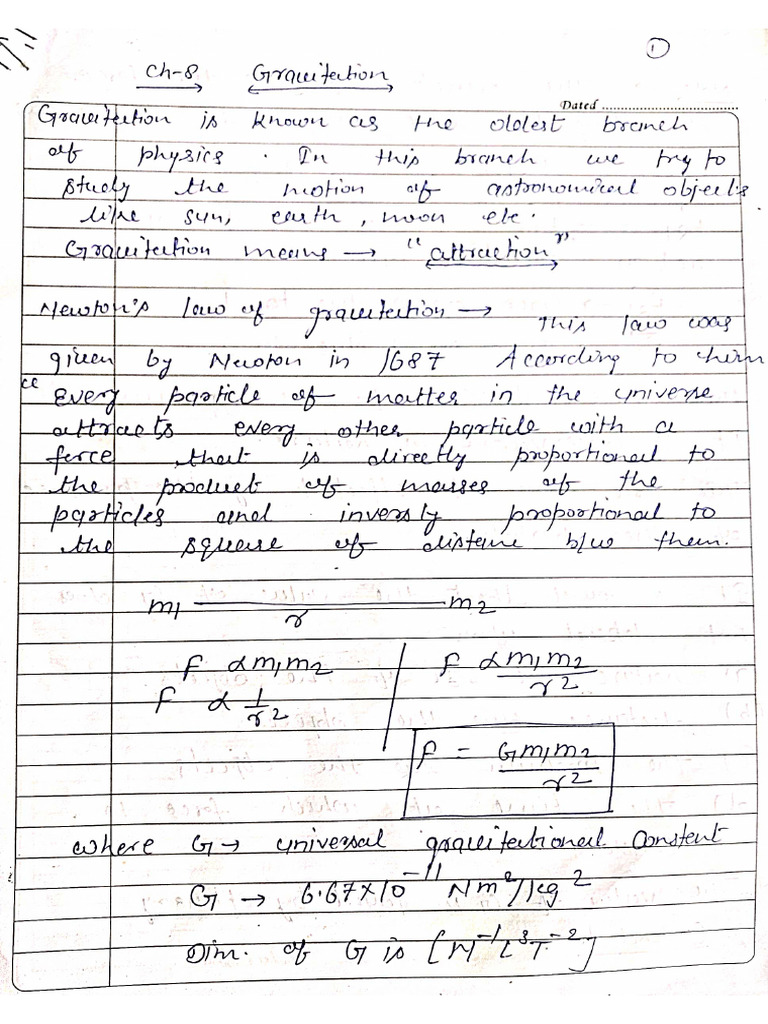 ①
Ch-8 Gravitation
Dated ....................................
Gravitation is known as the oldest branch
of physics. In this branch we try to
study the motion of astronomical objects
like sun, earth, moon etc.
Gravitation means → "attraction"
Newton's law of gravitation → This law was
given by Newton in 1687 According to him
"Every particle of matter in the universe
attracts every other particle with a
force that is directly proportional to
the product of masses of the
particles and inversly proportional to
the square of distance b/w them.
m1 ——— m2
r
F ∝ m1m2 / F ∝ m1m2/r²
F ∝ 1/r²
F = Gm1m2/r²
where G → universal gravitational constant
G → 6.67×10⁻¹¹ Nm²/kg²
Dim. of G is [M⁻¹L³T⁻²]